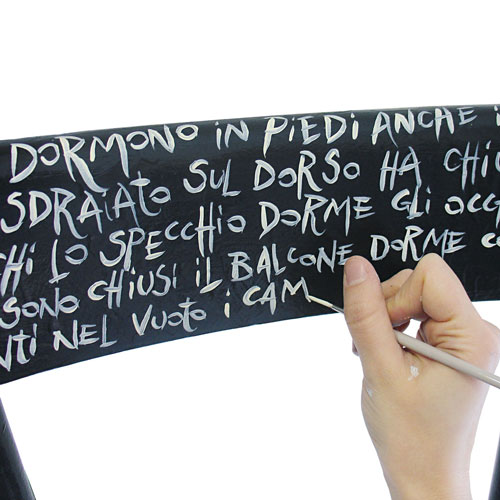 DORMONO IN PIEDI ANCHE
SDRAIATO SUL DORSO HA CHIU
CHI LO SPECCHIO DORME GLI OCC
SONO CHIUSI IL BALCONE DORME
NTI NEL VUOTO I CAM